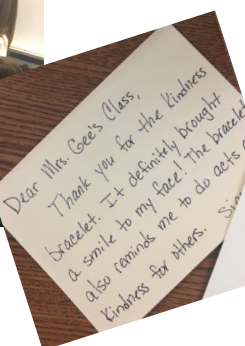 Dear Mrs. Gee's Class,
Thank you for the kindness
bracelet. It definitely brought
a smile to my face! The bracele
also reminds me to do acts
kindness for others. Sin